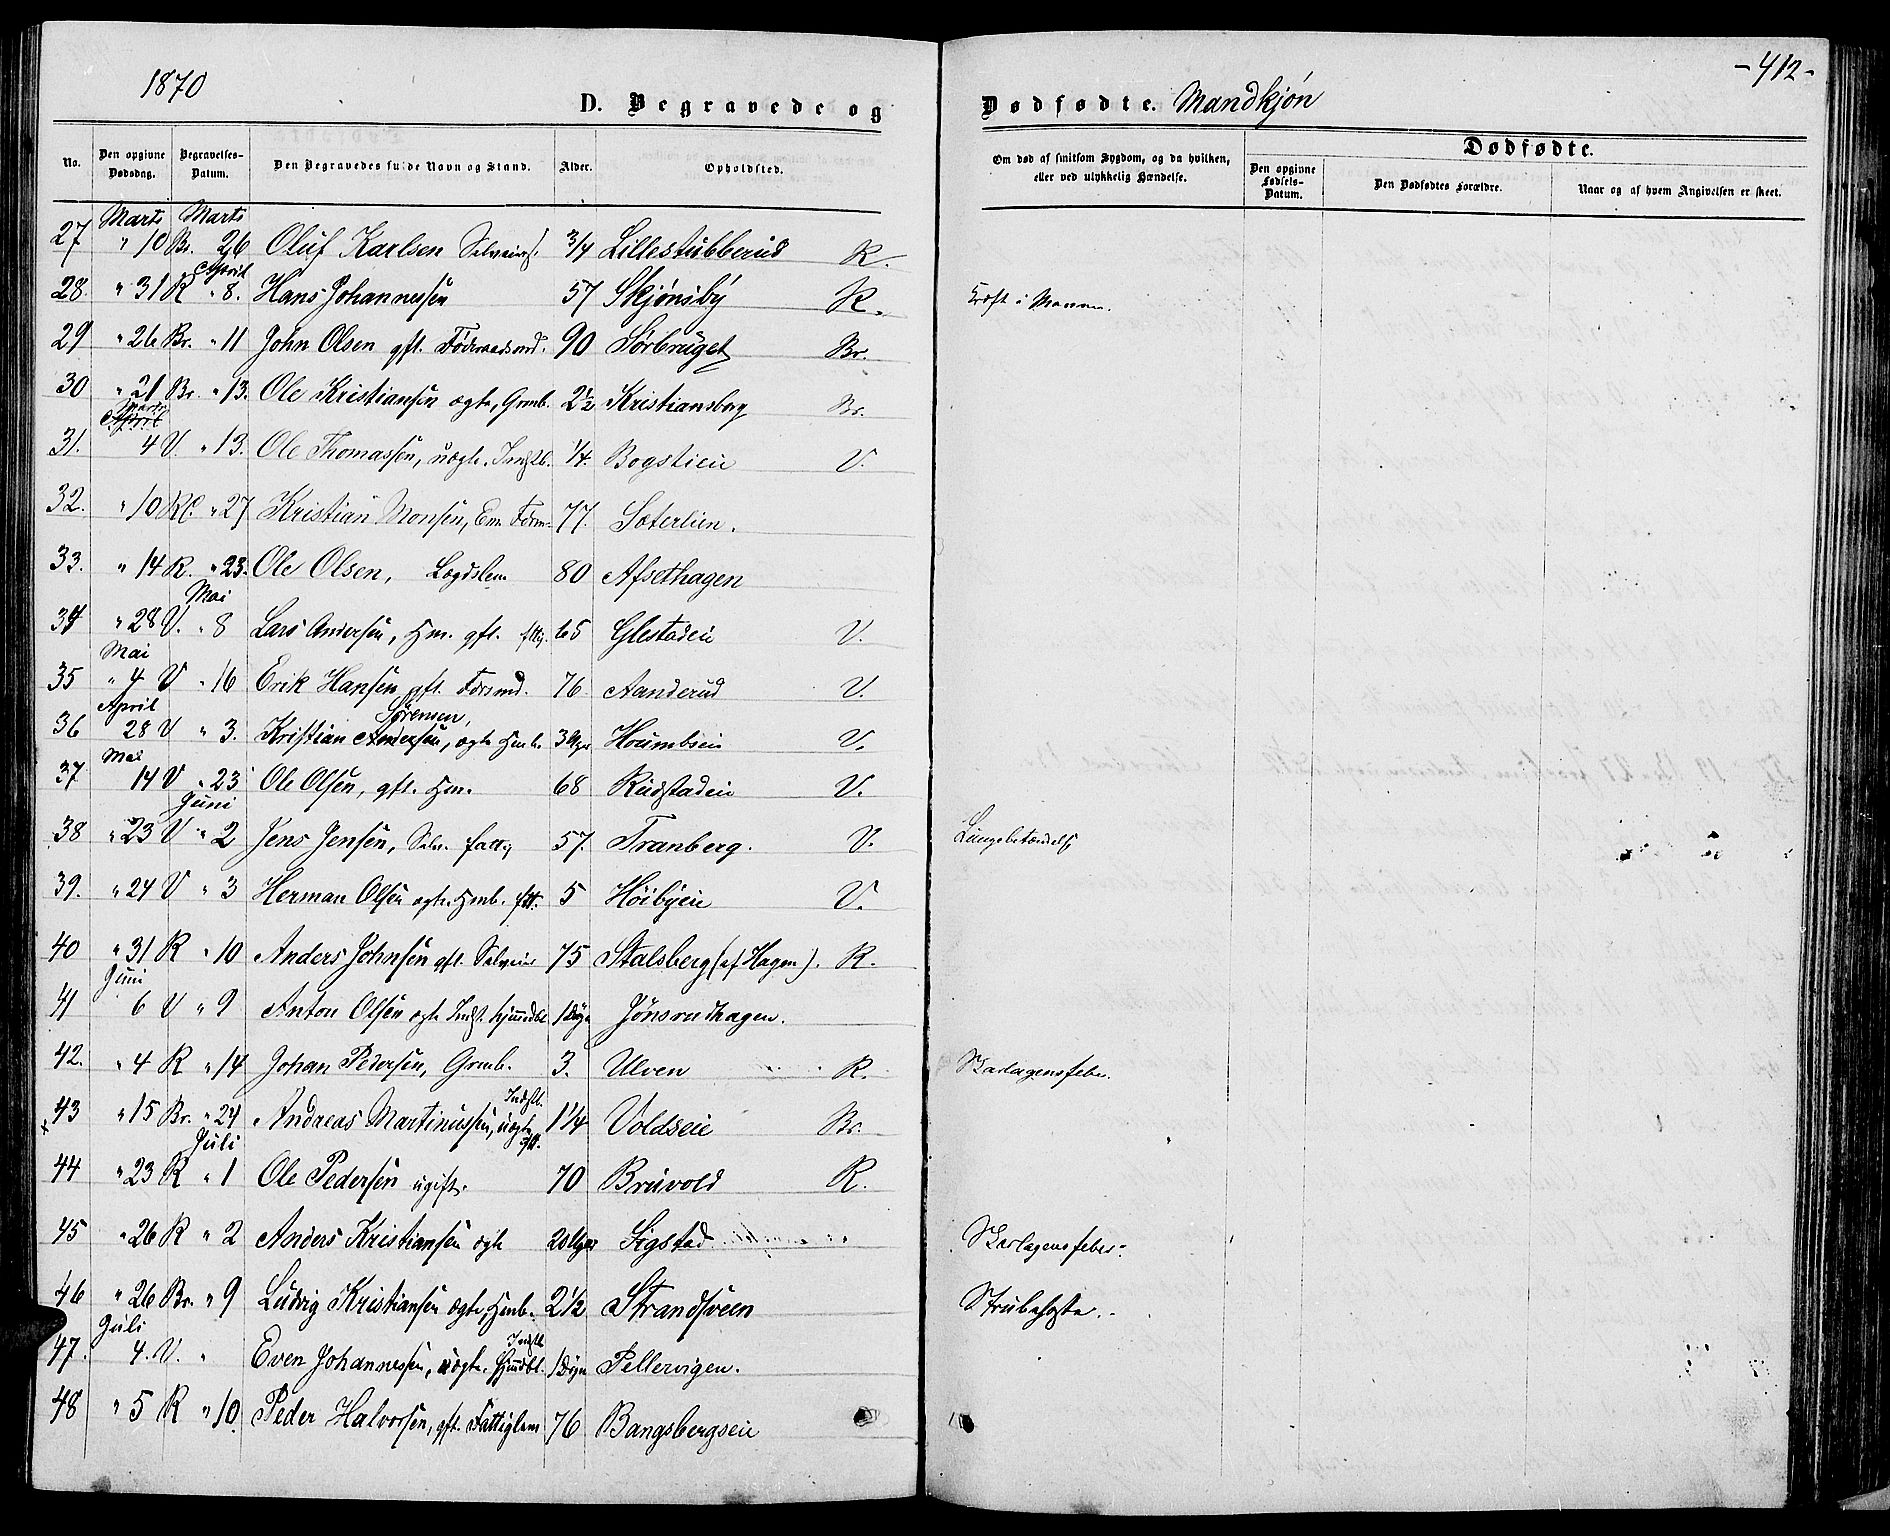 1870
D. Begravede og
No. Den opgivne Dødsdag. Begravelses-Datum. Den Begravedes fulde Navn og Stand. Alder. Opholdsted.
Marts Marts
27 " 10 Br. 26 Oluf Karlsen 3/4 Lillestubberud R.
April
28. " 31 R " 8. Hans Johannessen 57 Skjønsby R.
29 " 26 Br. " 11 John Olsen gft. Føderaadsmd. 90 Sørbruget Br.
30 " 21 Br. " 13. Ole Kristiansen ægte, Grmb. 2½ Kristiansborg Br.
Marts
April
31. 4 V. " 13. Ole Thomassen, uægte, Indstb. 1/4. Bogstieie V.
32. " 10 R " 27 Kristian Monsen, Em. Form. 77. Sæterlien.
33. " 14 R. " 23. Ole Olsen, Lægdslem 80 Afsethagen
Mai
34 " 28 V. " 8 Lars Andersen, Hm. gft. 65 Glestadeie V.
Mai
35 " 4 V " 16 Erik Hansen gft. Forsmd. 76 Aanderud V.
April Sørensen,
36 28 V " 3. Kristian Andersen, ægte Hmb. 3 Uger Houmbseie V.
Mai
37 14 V " 23 Ole Olsen, gft. Hm. 68 Rudstadeie V.
Juni
38 " 23 V " 2 Jens Jensen, Selv. fattig 57. Tranberg. V.
39. " 24 V " 3 Herman Olsen ægte Hmb. ftt. 5 Høibyeie V.
40 " 31 R " 10 Anders Johnsen gft. Selveier 75 Stalsberg (af Hagen). R.
Juni
41 6 V " 9 Anton Olsen ægte Indst. hjmdbt 1 Døgn Jønsrudhagen.
42. " 4 R " 14 Johan Pedersen, Grmb. 3. Ulven R.
Indstt.
43 " 15 Br. " 24 Andreas Martinussen, uægte 1 1/4 Voldseie Br.
Juli
44 " 23 R " 1 Ole Pedersen ugift. 70 Bruvold R.
45 " 26 R " 2 Anders Kristiansen ægte 20 Uger Sigstad
46 " 26 Br. " 9 Ludvig Kristiansen ægte, Hmb. 2½ Strandsveen
Juli Indstt
47. 4. V. " Even Johannessen, uægte, hjmdbt. 1 Døgn Pellervigen.
48 " 5 R " 10. Peder Halvorsen, gft. Fattiglem 76 Bangsbergseie
-412-
Dødfødte. Mandkjøn
Om død af smitsom Sygdom, og da hvilken, eller ved ulykkelig Hændelse. Dødfødte.
Den opgivne Fødsels-Datum. Den Dødfødtes Forældre. Naar og af hvem Angivelsen er skeet.
Kræft i Maven.
Lungebetændelse
Skarlagensfeber.
Skarlagensfeber.
Strubehoste.